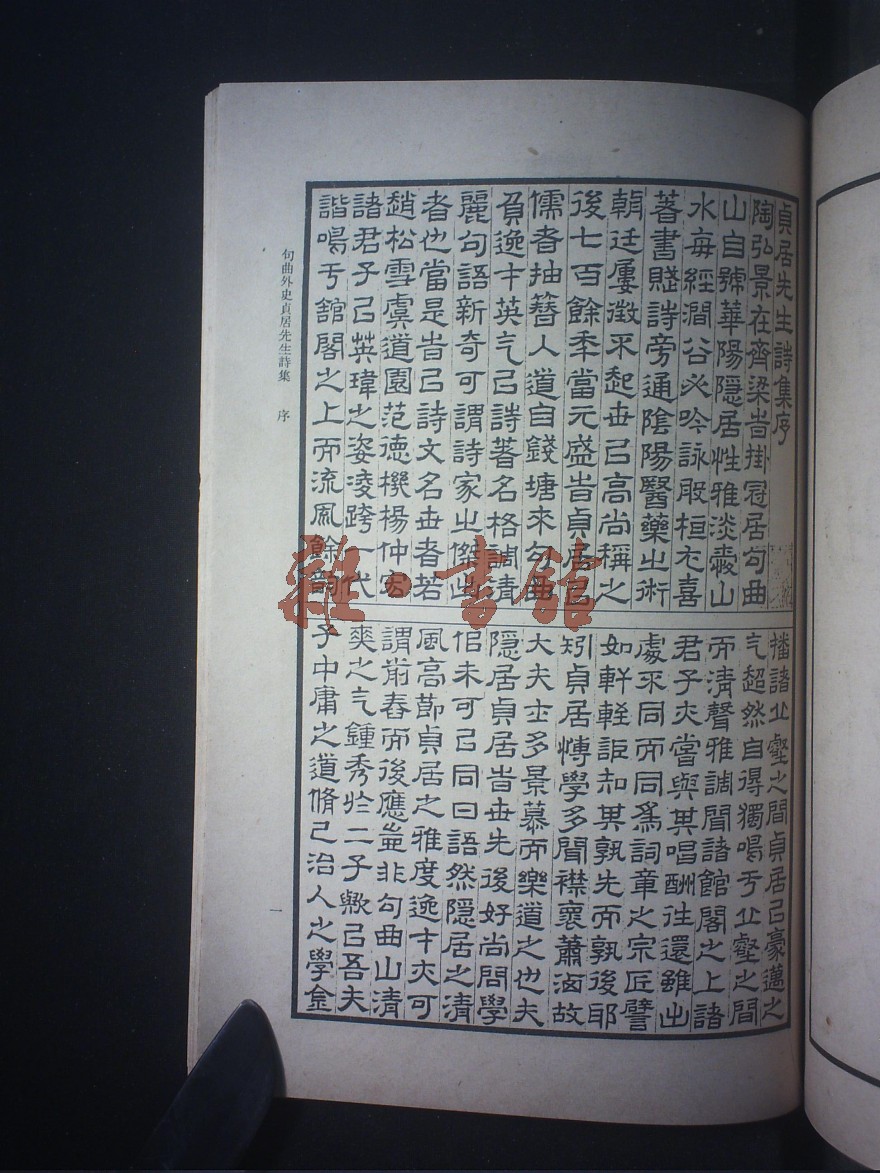 貞居先生詩集序
陶弘景在齊梁旹掛冠居句曲
山自號華陽隱居性雅淡䆉山
水每經澗谷必吟詠般桓尤喜
著書賦詩旁通陰陽醫藥㞢術
朝廷屢徵不起世㠯高尚稱之
後七百餘秊當元盛旹貞居㠯
儒者抽簪人道自錢塘來句曲
負逸才英气㠯詩著名格調清
麗句語新奇可謂詩家㞢傑出
者也當是旹㠯詩文名世者若
趙松雪虞道園范德機楊仲宏
諸君子㠯英瑋之姿凌跨一代
諧鳴亏館閣之上而流風餘韵
播諸丠壑之間貞居㠯豪邁之
气超然自得獨鳴亏丠壑之間
而清聲雅調聞諸館閣之上諸
君子亦嘗與其唱酬往還雖出
處不同而同爲詞章之宗匠譬
如軒輊詎知其孰先而孰後耶
矧貞居博學多聞襟褱蕭洒故
大夫士多景慕而樂道之也夫
隱居貞居旹世先後好尚問學
侣未可㠯同日語然隱居之清
風高節貞居之雅度逸才亦可
謂前舂而後應豈非句曲山清
爽之气鍾秀於二子歟㠯吾夫
子中庸之道脩己治人之學
句曲外史貞居先生詩集 序
一
雜·書館